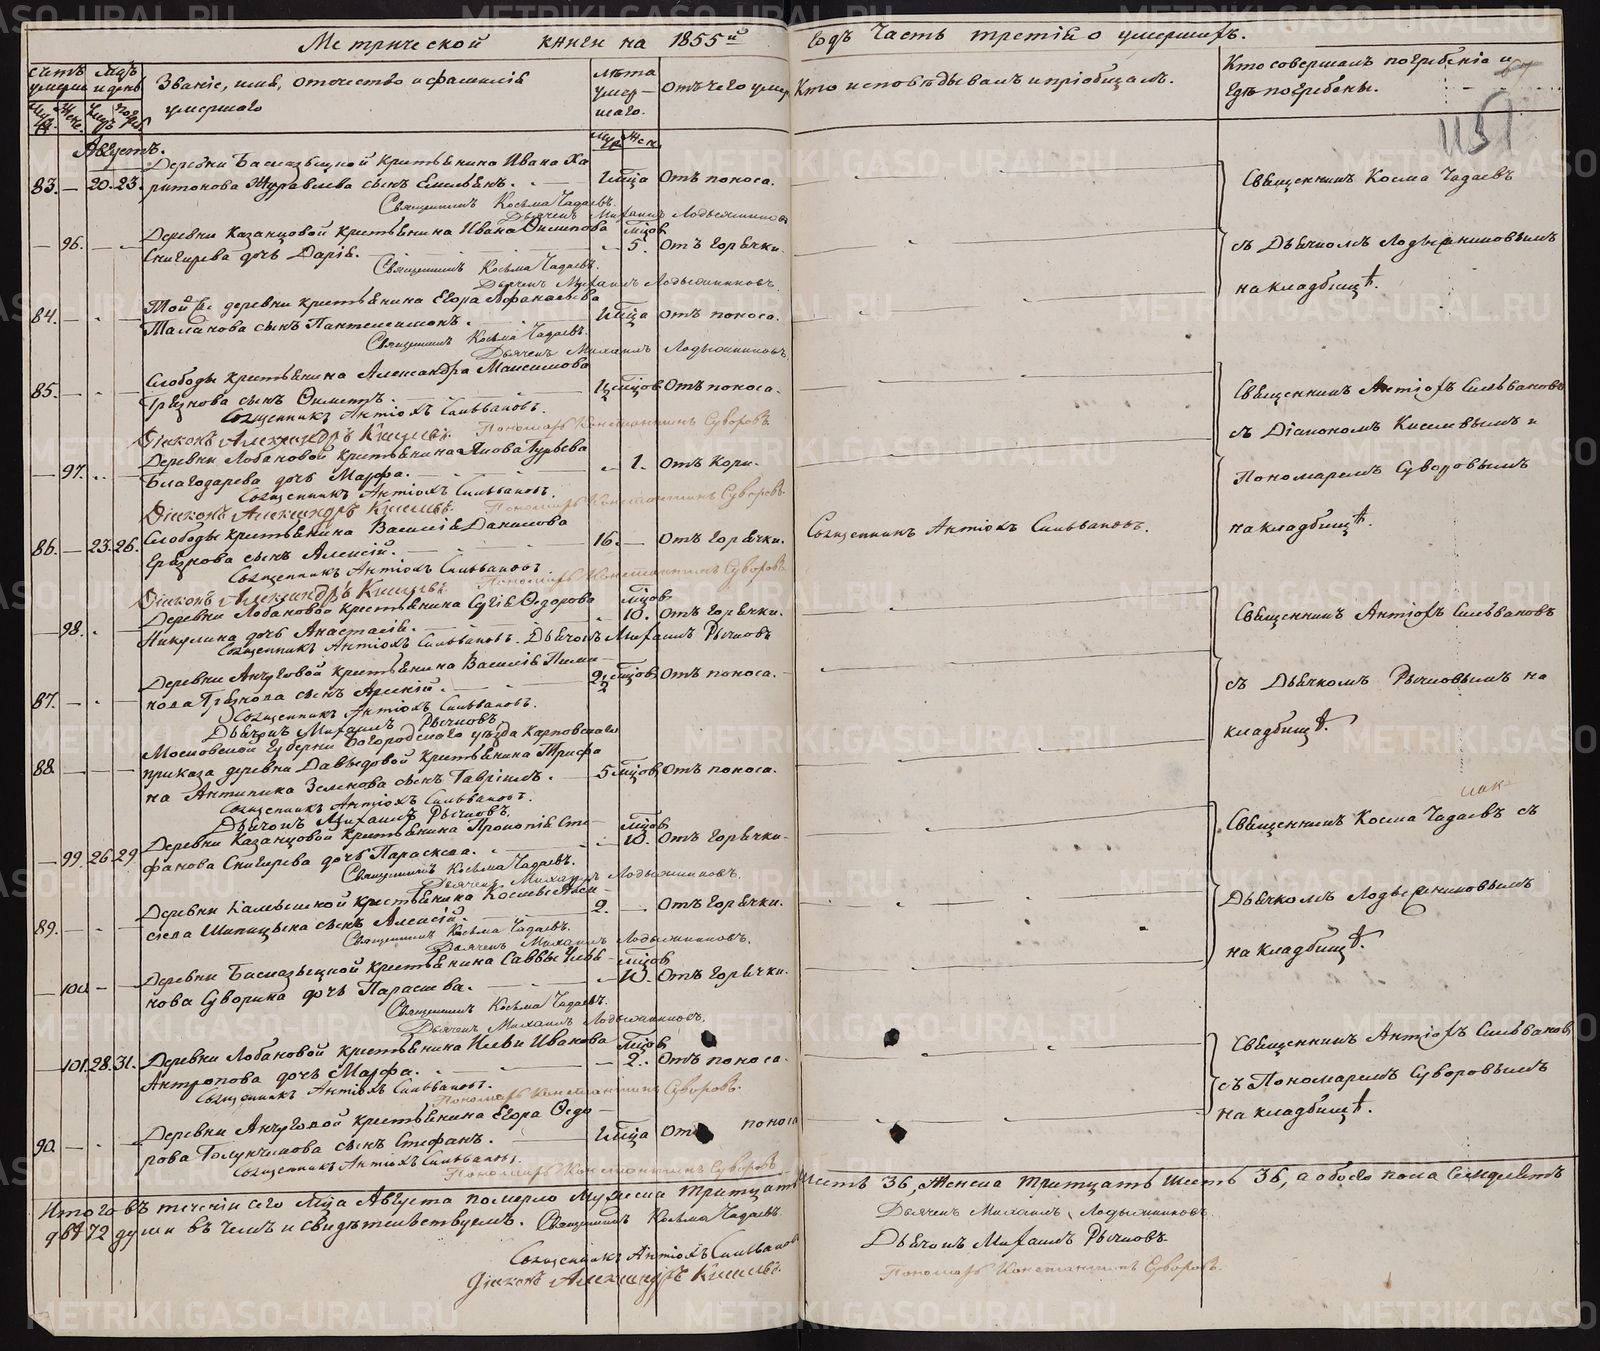 Метрической книги на 1855й
годъ Часть третія о умершихъ.
Счетъ умерш
Мцъ и день
Званіе, имя, отечество и фамилія
умершаго
Лѣта умер-
шаго.
Отъ чего умер
Кто исповѣдывалъ и пріобщалъ.
Кто совершалъ погребеніе и
гдѣ погребены.
115
Муж. Жен.
Августъ.
Деревни Басмазѣцкой крестьянина Ивана Ха
83. — 20. 23. ритонова Журавлева сынъ Емельянъ. — 1 мца Отъ поноса.
Священникъ Косьма Чадаевъ.
Дьячекъ Михаилъ Лодыжниковъ
Деревни Казанцовой крестьянина Ивана Филипова мцов
— 96. — — Снигирева дочь Дарія. 5. Отъ горячки.
Священникъ Косьма Чадаевъ.
Дьячекъ Михаилъ Лодыжниковъ.
Той же деревни крестьянина Егора Афанасьева
84. — Маланова сынъ Пантелеимонъ. мца Отъ поноса.
Священникъ Косьма Чадаевъ.
Дьячекъ Михаилъ Лодыжниковъ.
Священникъ Косма Чадаевъ
съ Дьячкомъ Лодыжниковымъ
на кладбищѣ.
Слободы крестьянина Александра Максимова
85. — Грязнова сынъ Филиппъ. мцов Отъ поноса.
Священникъ Антіохъ Сильвановъ.
Діаконъ Александръ Киселевъ. Пономарь Константинъ Суворовъ.
Деревни Лобановой крестьянина Якова Гурьева
— 97. Благодарева дочь Марфа. 1. Отъ Кори.
Священникъ Антіохъ Сильвановъ.
Діаконъ Александръ Киселевъ. Пономарь Константинъ Суворовъ.
Слободы крестьянина Василія Данилова
86. — 23. 26. Грязнова сынъ Алексій. 16. — Отъ горячки. Священникъ Антіохъ Сильвановъ.
Священникъ Антіохъ Сильвановъ.
Діаконъ Александръ Киселевъ. Пономарь Константинъ Суворовъ
Священникъ Антіохъ Сильвановъ
съ Діакономъ Киселевымъ и
Пономаремъ Суворовымъ
на кладбищѣ.
Деревни Лобановой крестьянина Сергія Федорова мцов
— 98. Никулина дочь Анастасія. 10. Отъ горячки.
Священникъ Антіохъ Сильвановъ. Дьячокъ Михаилъ Рычковъ
Деревни Анчуговой крестьянина Василія Пиме-
87. — нова Грязнова сынъ Арсеній. 2½ мцов Отъ поноса.
Священникъ Антіохъ Сильвановъ.
Дьячокъ Михаилъ Рычковъ.
Московской Губерни Богородскаго уѣзда Карповскаго
88. — — приказа деревни Давыдовой крестьянина Трифо
на Антипина Зеленова сынъ Гавріилъ. 5 мцов Отъ поноса.
Священникъ Антіохъ Сильвановъ.
Дьячокъ Михаилъ Рычковъ.
Священникъ Антіохъ Сильвановъ
съ Дьячкомъ Рычковымъ на
кладбищѣ.
Деревни Казанцовой крестьянина Прокопія Сте- мцов
— 99. 26. 29. фанова Снигирева дочь Параскева. 10. Отъ горячки.
Священникъ Косьма Чадаевъ.
Дьячекъ Михаилъ Лодыжниковъ.
Деревни Камышной крестьянина Косьмы Алек-
89. — — сеева Шипицына сынъ Алексій. 2. Отъ горячки.
Священникъ Косьма Чадаевъ.
Дьячекъ Михаилъ Лодыжниковъ.
Деревни Басмазѣцкой крестьянина Саввы мцов
— 100. — нова Суворина дочь Парасьева. 10. Отъ горячки.
Священникъ Косьма Чадаевъ.
Дьячекъ Михаилъ Лодыжниковъ.
Священникъ Косма Чадаевъ съ
Дьячкомъ Лодыжниковымъ
на кладбищѣ.
Деревни Лобановой крестьянина Ильи Иванова мцов
— 101. 28. 31. Антропова дочь Марфа. 2. Отъ поноса.
Священникъ Антіохъ Сильвановъ.
Пономарь Константинъ Суворовъ.
Деревни Анчуговой крестьянина Егора Федо-
90. — рова Голунчикова сынъ Стефанъ. 1 мца Отъ поноса
Священникъ Антіохъ Сильвановъ.
Пономарь Константинъ Суворовъ
Священникъ Антіохъ Сильвановъ
съ Пономаремъ Суворовымъ
на кладбищѣ.
Итого въ теченіи сего мца Августа померло мужеска тритцать шесть 36, Женска тритцать шесть 36, а обоего пола семдесятъ
двѣ 72 души въ чемъ и свидѣтельствуемъ. Священникъ Косьма Чадаевъ.
Священникъ Антіохъ Сильвановъ
Діаконъ Александръ Киселевъ.
Дьячекъ Михаилъ Лодыжниковъ.
Дьячокъ Михаилъ Рычковъ.
Пономарь Константинъ Суворовъ.
METRIKI.GASO-URAL.RU